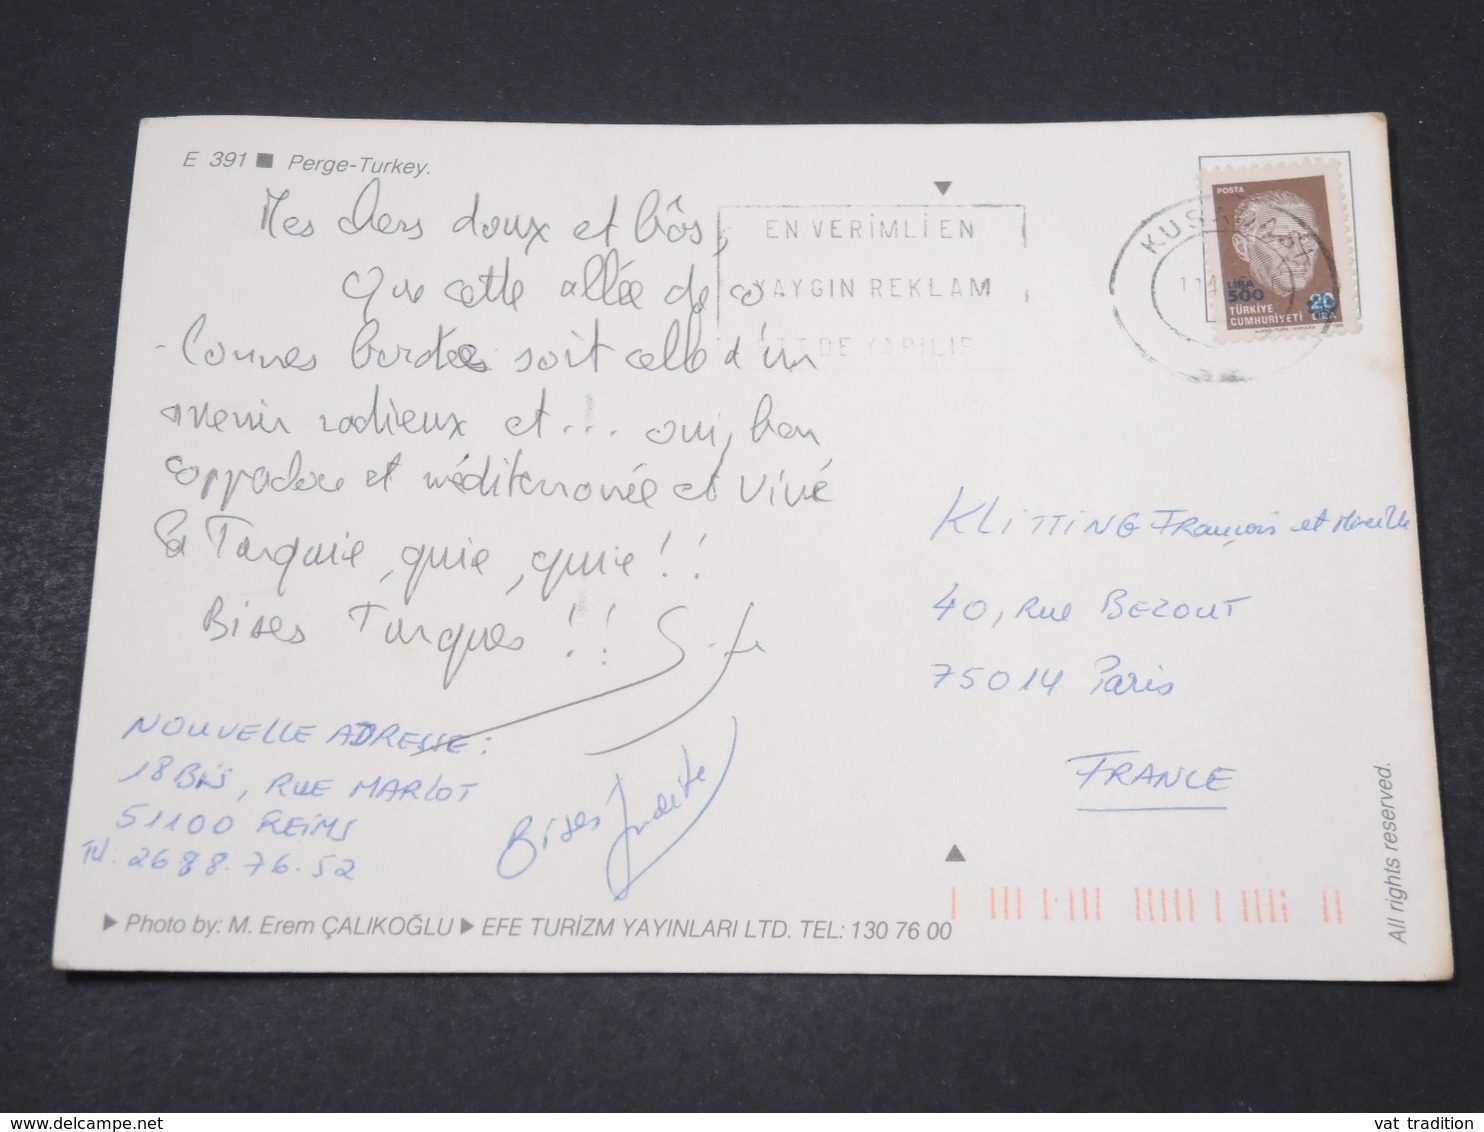 E 391 ■ Perge-Turkey.
Mes chers doux et bôs,
Que cette allée de co
-lonnes bordées soit celle d'un
avenir radieux et... oui, bon
cappadoce et méditerranée et vive
la Turquie, quie, quie!!
Bises Turques!!
NOUVELLE ADRESSE:
18 Bis, RUE MARLOT
51100 REIMS
Tél: 26 88.76.52
Bises Judith
EN VERİMLİ EN
YAYGIN REKLAM
PTT DE YAPILIR
KUSADASI
POSTA
LIRA
500
20
LIRA
TÜRKİYE
CUMHURİYETİ
KLITTING François et Mireille
40, Rue BEZOUT
75014 Paris
FRANCE
▶ Photo by: M. Erem ÇALIKOĞLU ▶ EFE TURİZM YAYINLARI LTD. TEL: 130 76 00
All rights reserved.
vat tradition
www.delcampe.net